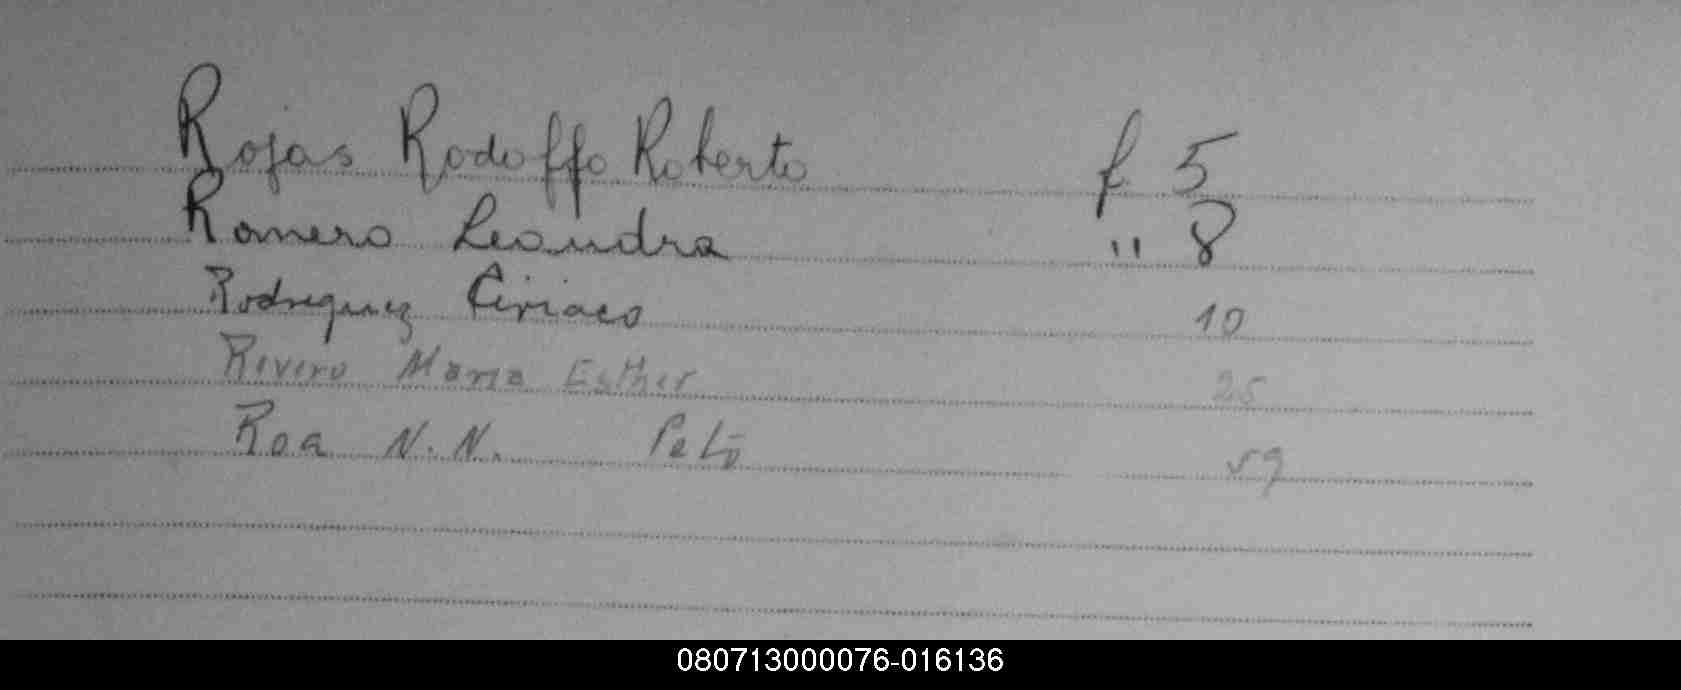 Rojas Rodolfo Roberto f 5
Romero Leandra " 8
Rodriguez Ciriaco 10
Rivero Maria Esther 25
Roa N.N. 59
080713000076-016136